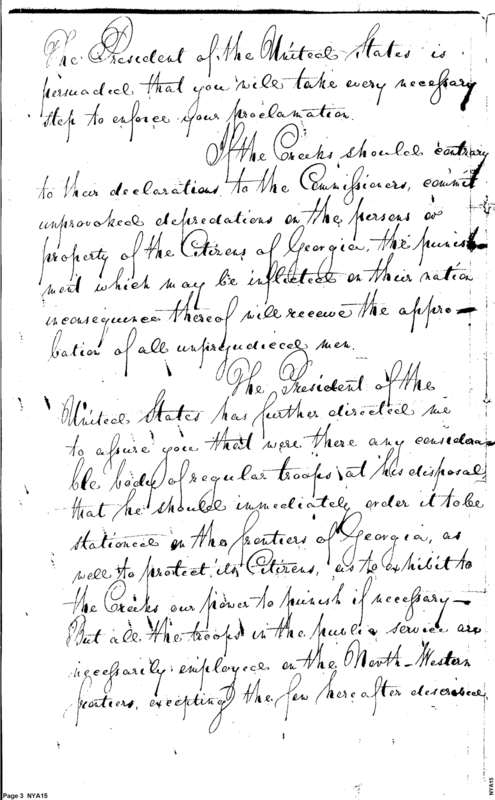 The President of the United States is
persuaded that you will take every necessary
step to enforce your proclamation.
If the Creeks should contrary
to their declarations to the Commissioners, commit
unprovoked depredations on the persons or
property of the Citizens of Georgia, the punish-
ment which may be inflicted on their nation
in consequence thereof will receive the appro-
bation of all unprejudiced men.
The President of the
United States has further directed me
to assure you that were there any considera-
ble body of regular troops at his disposal
that he should immediately order it to be
stationed on the frontiers of Georgia, as
well to protect its Citizens, as to exhibit to
the Creeks our power to punish if necessary-
But all the troops in the public service are
necessarily employed on the North-Western
frontiers, excepting the few hereafter described
Page 3 NYA15
NYA15